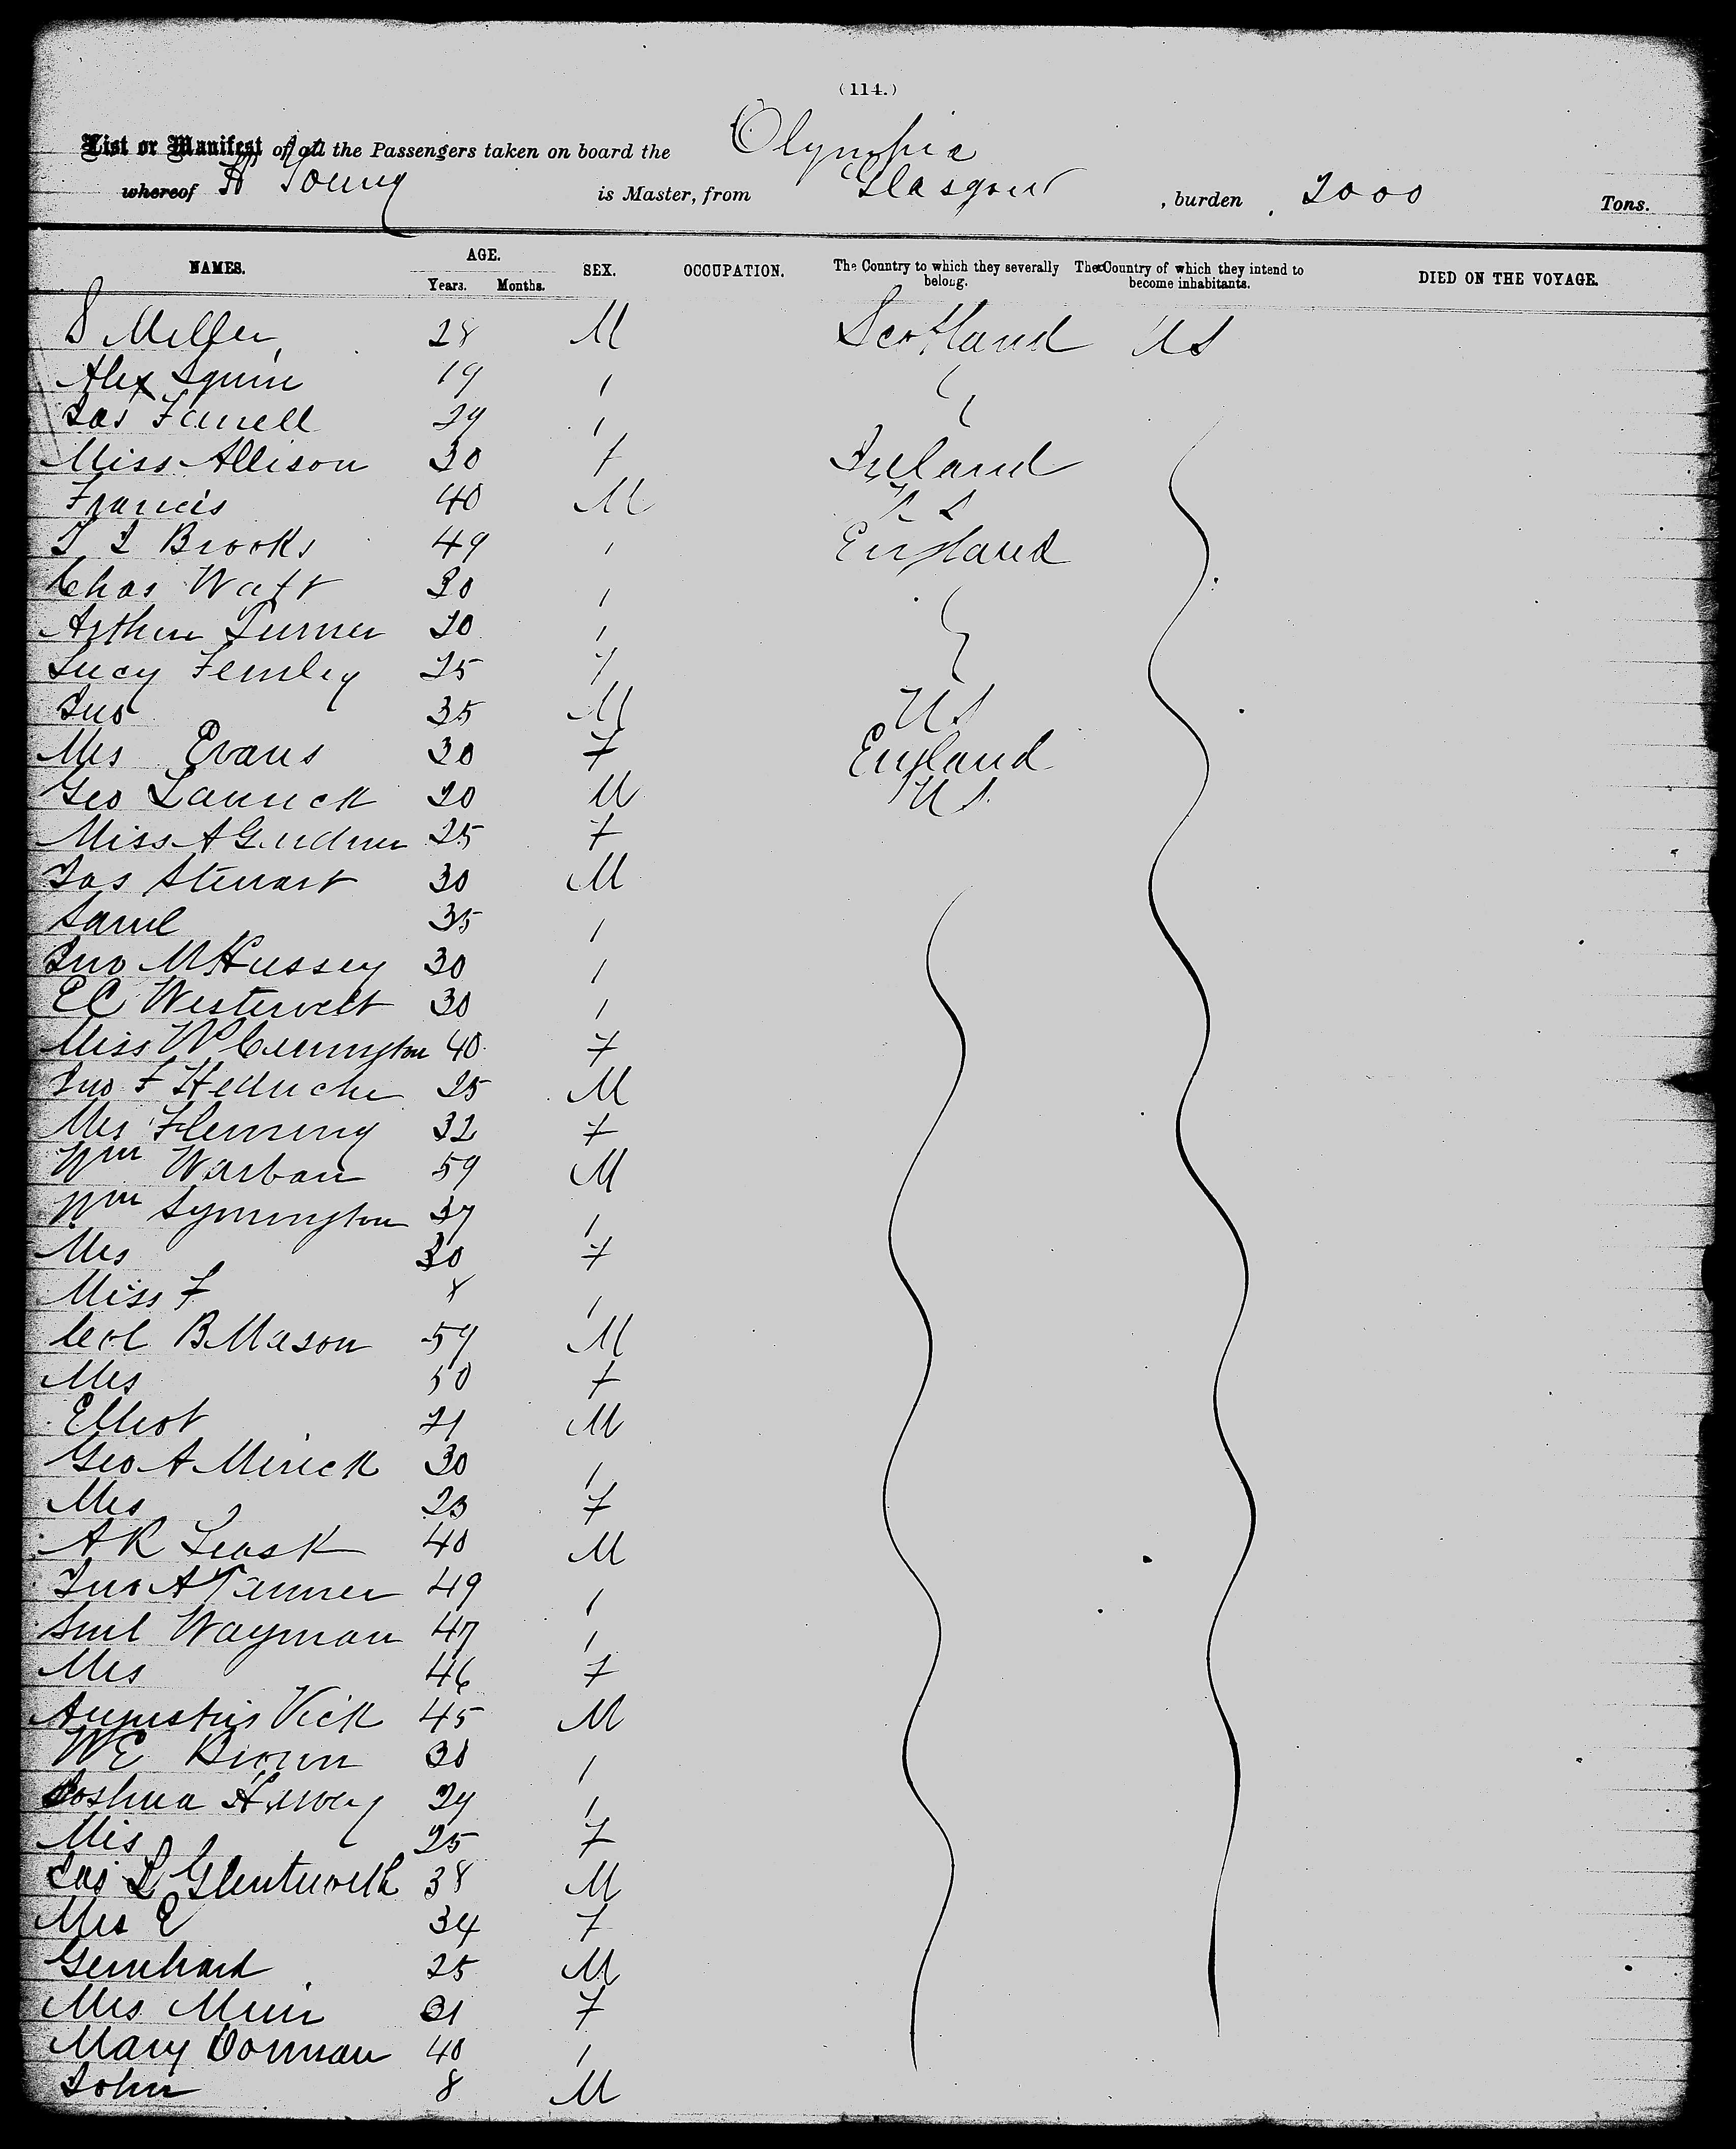 (114.)
List or Manifest of all the Passengers taken on board the Olympia
whereof A Young is Master, from Glasgow, burden 2000 Tons.
NAMES. AGE. Years. Months. SEX. OCCUPATION. The Country to which they severally belong. The Country of which they intend to become inhabitants. DIED ON THE VOYAGE.
S Miller 28 M Scotland US
Alex Squire 19 "
Jas Farrell 29 "
Miss Allison 30 F Ireland
Francis 40 M US
T I Brooks 49 " England
Chas Watt 30 "
Arthur Turner 20 "
Lucy Fernley 25 F
Jno 35 M US
Mrs Evans 30 F England
Geo Lanrick 20 M US
Miss A 25 F
Jas Stewart 30 M
Saml 35 "
Jno M Hussey 30 "
EC Westervelt 30 "
Miss W 40 F
Jno F 25 M
Mrs Fleming 32 F
Wm Warban 59 M
Wm Symington 37 "
Mrs 30 F
Miss F 8 "
Col B Mason 59 M
Mrs 50 F
Elliot 21 M
Geo A Mirick 30 "
Mrs 23 F
AR Leask 40 M
Jno A Tanner 49 "
Saml Wayman 47 "
Mrs 46 F
Augustus Vick 45 M
WE Brown 38 "
Joshua 29 "
Mrs 25 F
Jas L Glentworth 38 M
Mrs E 34 F
Gernhard 25 M
Mrs Muir 31 F
Mary Dorman 40 "
John 8 M